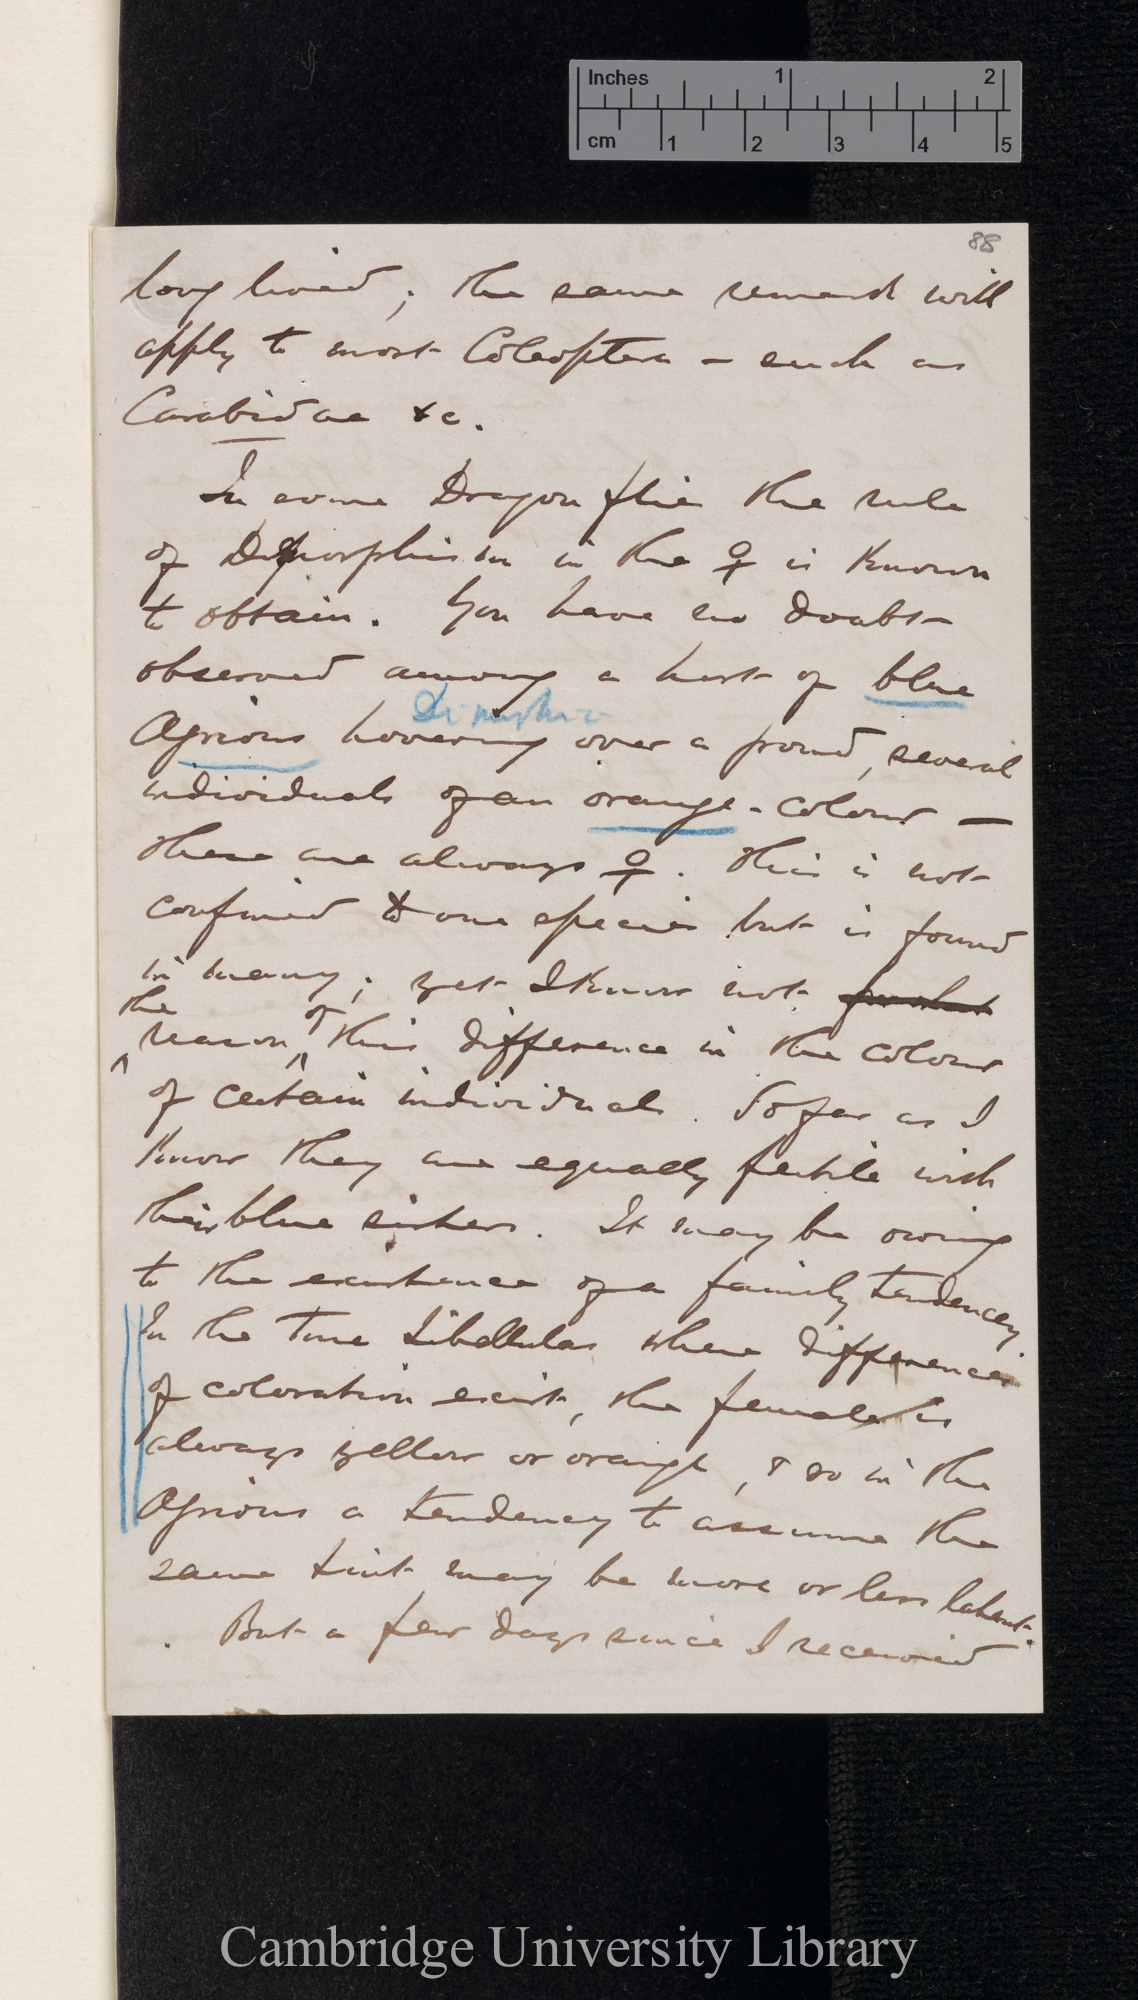 Inches 1 2
cm 1 2 3 4 5
88
long lived; the same remark will
apply to most Coleoptera – such as
Carabidae &c.
In some Dragon flies the rule
of Dimorphism in the ♀ is known
to obtain. You have no doubt
observed among a host of blue
Dimorphic
Agrions hovering over a pond, several
individuals of an orange-colour —
these are always ♀. This is not
confined to one species but is found
in many; yet I know not for what
the of
reason this difference in the colour
of certain individuals. So far as I
know they are equally fertile with
their blue sisters. It may be owing
to the existence of a family tendency
In the True Libellulas where differences
of coloration exist, the female is
always yellow or orange, & so in the
Agrions a tendency to assume the
same tint may be more or less latent.
But a few days since I received
Cambridge University Library